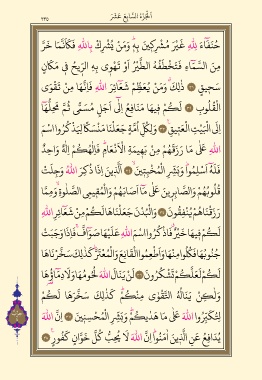 الجزء السابع عشر
٢٣٥
حُنَفَاءَ لِلّٰهِ غَيْرَ مُشْرِكِينَ بِهِ وَمَنْ يُشْرِكْ بِاللّٰهِ فَكَأَنَّمَا خَرَّ
مِنَ السَّمَاءِ فَتَخْطَفُهُ الطَّيْرُ أَوْ تَهْوِي بِهِ الرِّيحُ فِي مَكَانٍ
سَحِيقٍ ٣١ ذٰلِكَ وَمَنْ يُعَظِّمْ شَعَائِرَ اللّٰهِ فَإِنَّهَا مِنْ تَقْوَى
الْقُلُوبِ ٣٢ لَكُمْ فِيهَا مَنَافِعُ إِلٰى أَجَلٍ مُسَمًّى ثُمَّ مَحِلُّهَا
إِلَى الْبَيْتِ الْعَتِيقِ ٣٣ وَلِكُلِّ أُمَّةٍ جَعَلْنَا مَنْسَكًا لِيَذْكُرُوا اسْمَ
اللّٰهِ عَلٰى مَا رَزَقَهُمْ مِنْ بَهِيمَةِ الْأَنْعَامِ فَإِلٰهُكُمْ إِلٰهٌ وَاحِدٌ
فَلَهُ أَسْلِمُوا وَبَشِّرِ الْمُخْبِتِينَ ٣٤ الَّذِينَ إِذَا ذُكِرَ اللّٰهُ وَجِلَتْ
قُلُوبُهُمْ وَالصَّابِرِينَ عَلٰى مَا أَصَابَهُمْ وَالْمُقِيمِي الصَّلٰوةِ وَمِمَّا
رَزَقْنَاهُمْ يُنْفِقُونَ ٣٥ وَالْبُدْنَ جَعَلْنَاهَا لَكُمْ مِنْ شَعَائِرِ اللّٰهِ
لَكُمْ فِيهَا خَيْرٌ فَاذْكُرُوا اسْمَ اللّٰهِ عَلَيْهَا صَوَافَّ فَإِذَا وَجَبَتْ
جُنُوبُهَا فَكُلُوا مِنْهَا وَأَطْعِمُوا الْقَانِعَ وَالْمُعْتَرَّ كَذٰلِكَ سَخَّرْنَاهَا
لَكُمْ لَعَلَّكُمْ تَشْكُرُونَ ٣٦ لَنْ يَنَالَ اللّٰهَ لُحُومُهَا وَلَا دِمَاؤُهَا
وَلٰكِنْ يَنَالُهُ التَّقْوٰى مِنْكُمْ كَذٰلِكَ سَخَّرَهَا لَكُمْ
لِتُكَبِّرُوا اللّٰهَ عَلٰى مَا هَدٰيكُمْ وَبَشِّرِ الْمُحْسِنِينَ ٣٧ إِنَّ اللّٰهَ
يُدَافِعُ عَنِ الَّذِينَ آمَنُوا إِنَّ اللّٰهَ لَا يُحِبُّ كُلَّ خَوَّانٍ كَفُورٍ ٣٨